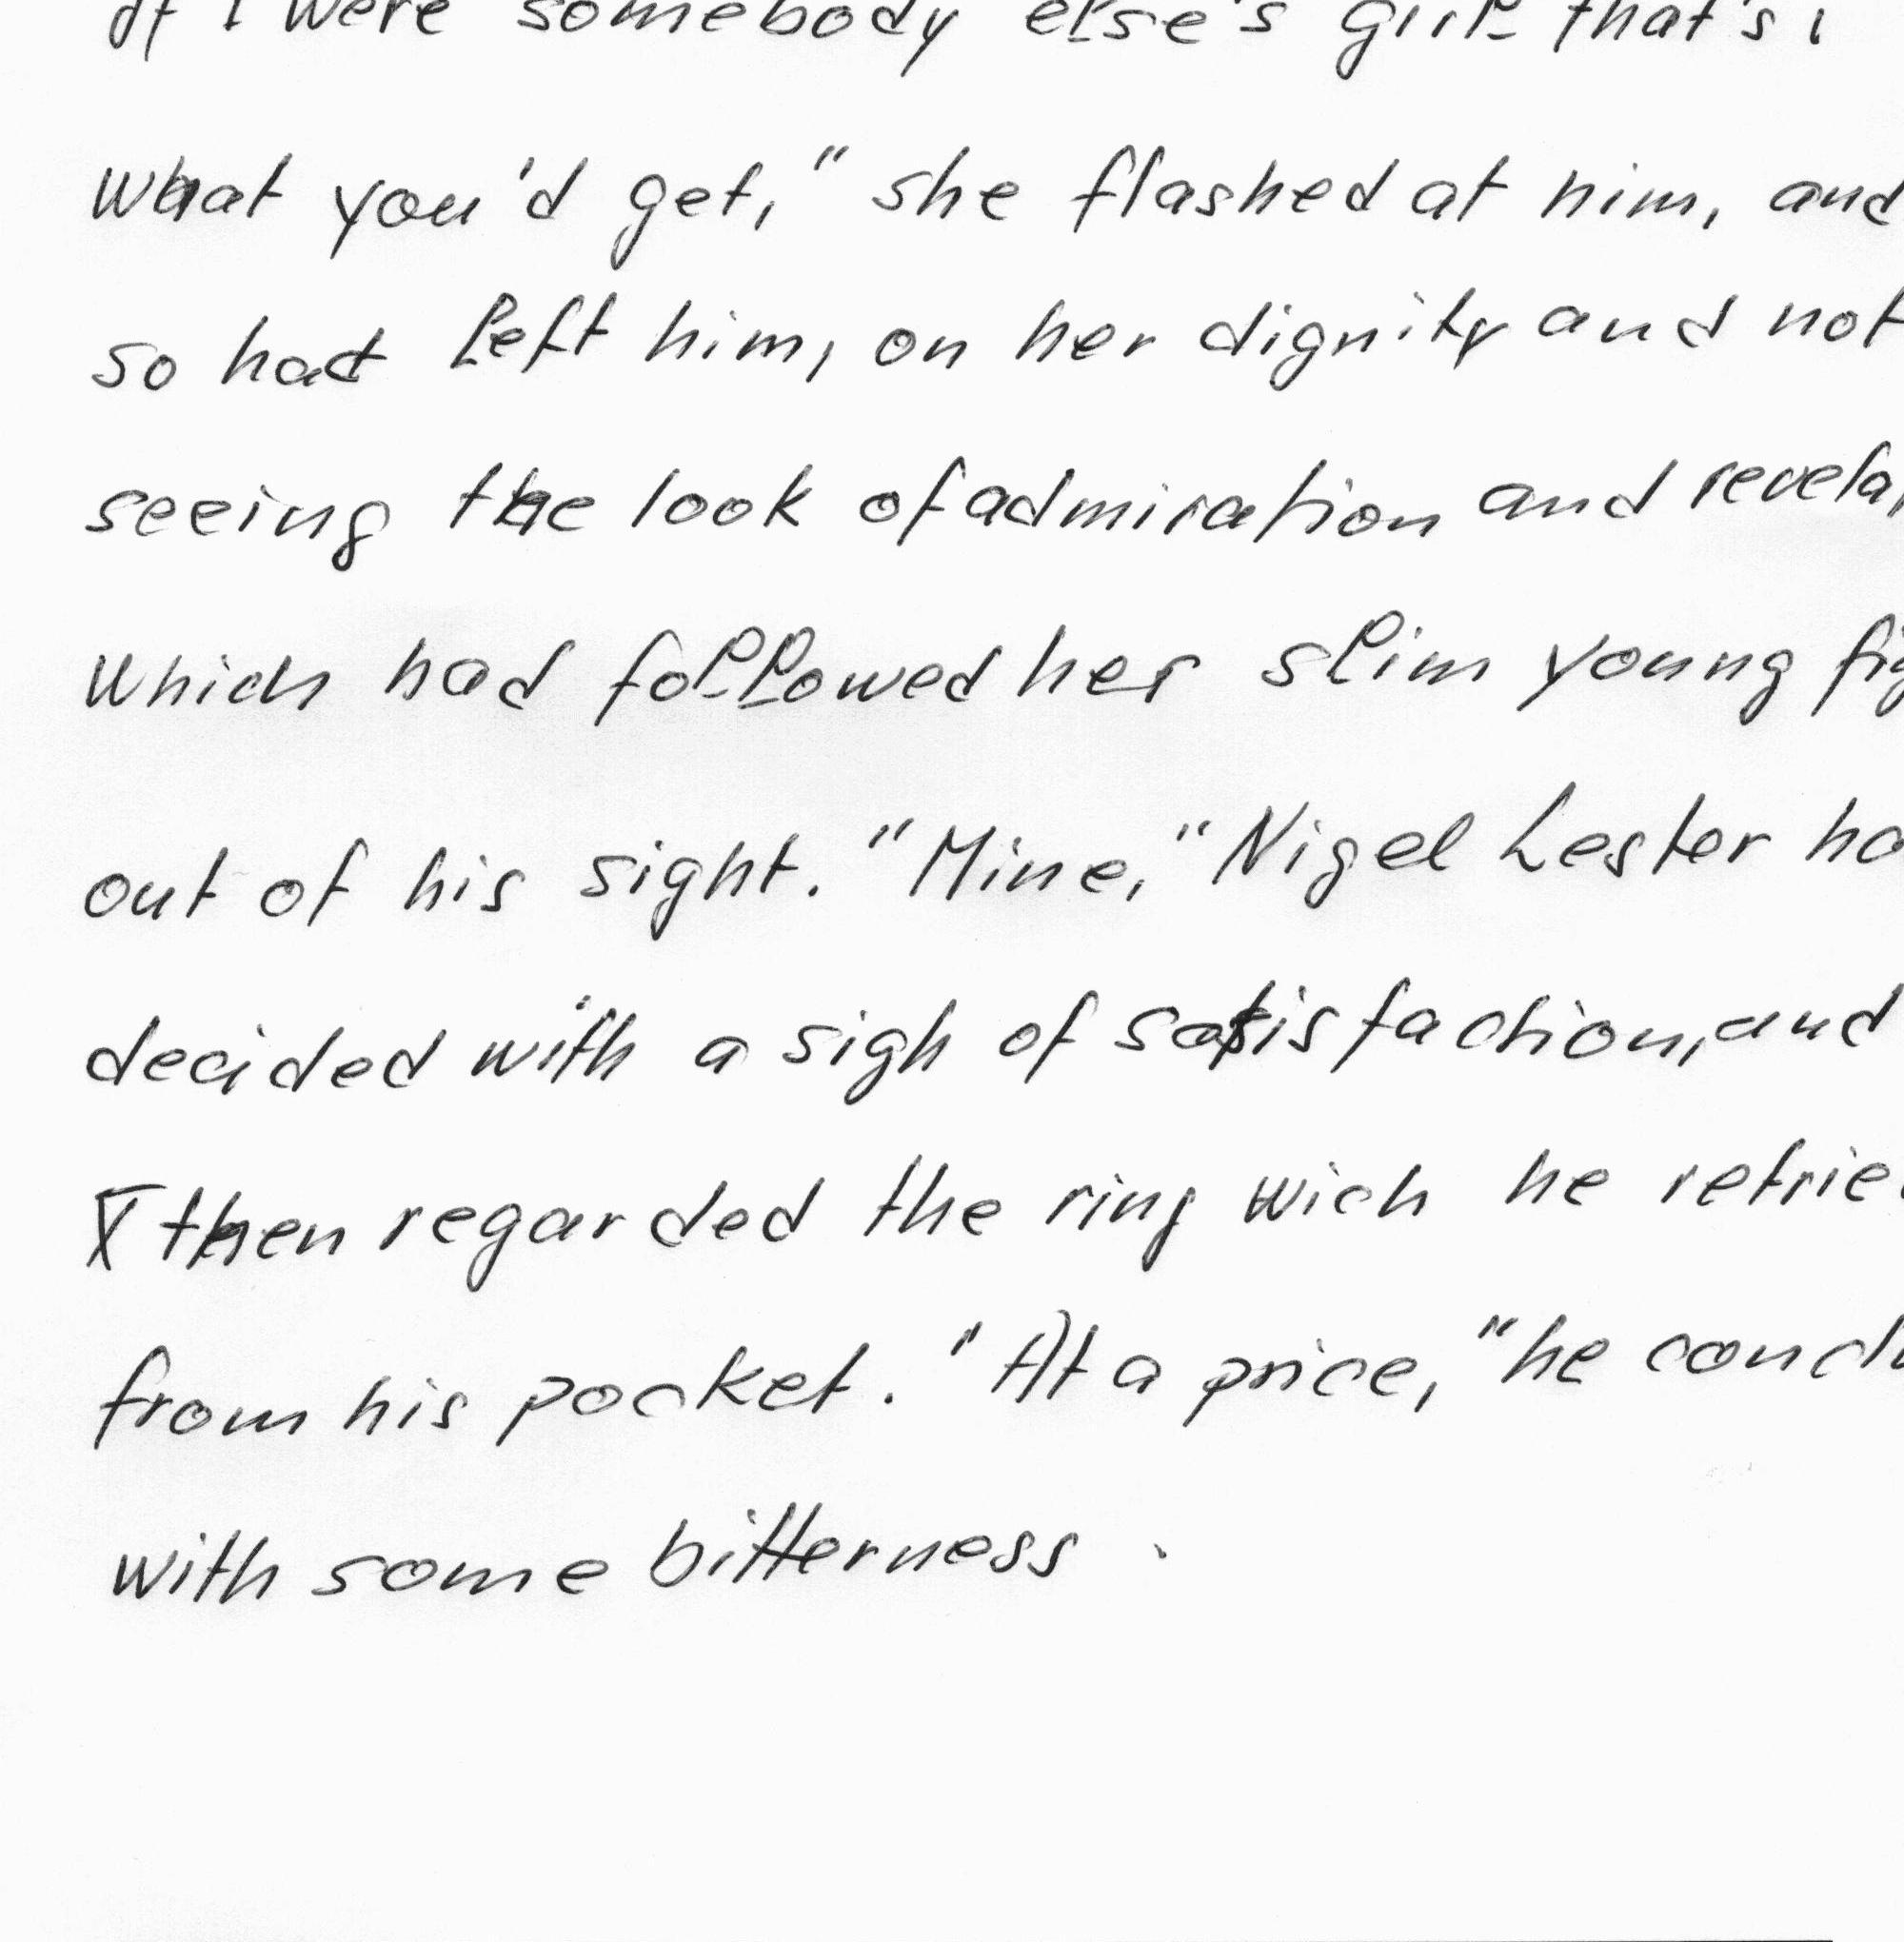 If I were somebody else's girl that's
what you'd get," she flashed at him, and
so had left him, on her dignity and not
seeing the look of admiration and
which had followed her slim young
out of his sight. "Mine," Nigel Lester
decided with a sigh of satisfaction, and
then regarded the ring wich he
from his pocket. "At a price," he
with some bitterness.